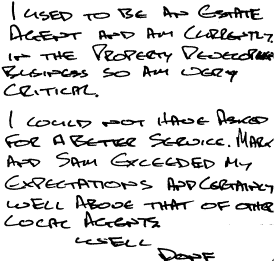 I USED TO BE AN ESTATE
AGENT AND AM CURRENTLY
IN THE PROPERTY DEVELOPER
BUSINESS SO AM VERY
CRITICAL.
I COULD NOT HAVE ASKED
FOR A BETTER SERVICE. MARK
AND SAM EXCEEDED MY
EXPECTATIONS AND CERTAINLY
WELL ABOVE THAT OF OTHER
LOCAL AGENTS
WELL
DONE